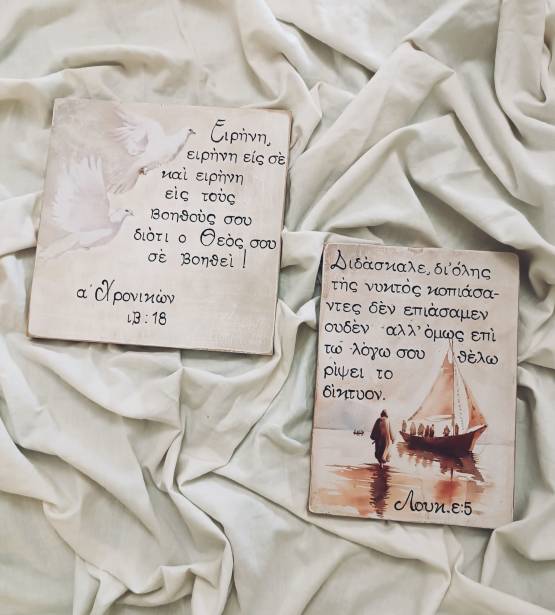 Ειρήνη,
ειρήνη είς σὲ
καὶ ειρήνη
εἰς τοὺς
βοηθοὺς σου
διὸτι ο Θεὸς σου
σὲ βοηθεὶ !
α΄ Χρονικών
ιβ : 18
Διδὰσκαλε, δι'ὅλης
τὴς νυκτὸς κοπιάσα-
ντες δὲν επιὰσαμεν
ουδὲν ·αλλ' ὁμως επὶ
τω λὸγω σου θὲλω
ρὶψει το
δὶκτυον.
Λουκ.ε:5